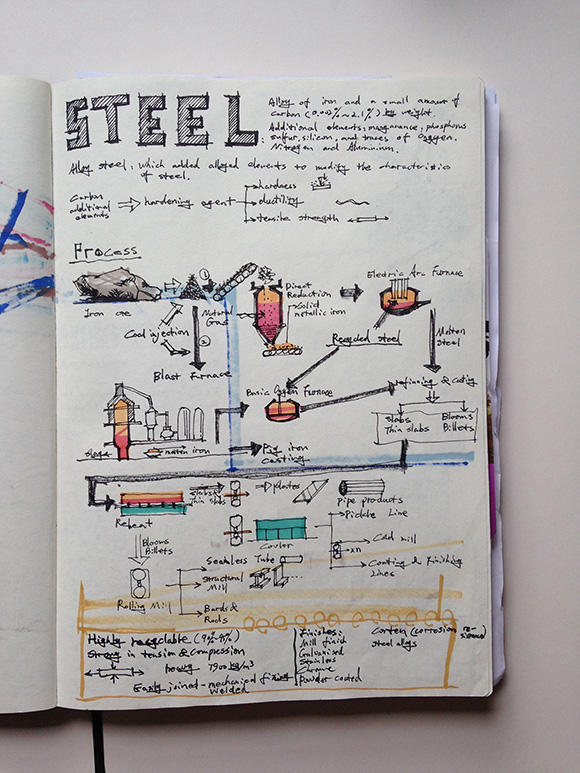 STEEL
Alloy of iron and a small amount of
carbon (0.02% ~ 2.1%) by weight.
Additional elements: manganese, phosphorus
sulfur, silicon, and traces of Oxygen,
Nitrogen and Aluminium.
Alloy steel, which added alloyed elements to modify the characteristics
of steel.
Carbon
additional
elements
hardening agent
hardness
ductility
tensile strength
Process
Iron ore
Coal injection
1
2
Natural
Gas
Blast Furnace
Direct
Reduction
Solid
metallic iron
Electric Arc Furnace
Recycled steel
Molten
Steel
Basic Oxygen Furnace
refining & Casting
Slabs
Thin slabs
Blooms
Billets
slag
molten iron
Pig iron
Casting
Reheat
Slabs &
Thin slabs
Plates
Pipe products
Cooler
Pickle Line
Cold mill
xn
Coating & Finishing
Lines
Blooms
Billets
Rolling Mill
Seamless Tube
Structural
Mill
Bards &
Rods
Highly recyclable
Strong in tension & compression
heavy 7900 kg/m3
Easily joined - mechanical fixing
welded
Finishes:
Mill finish
Galvanised
Stainless
Chrome
Powder coated
Corten (corrosion re-
sistance)
steel alloys